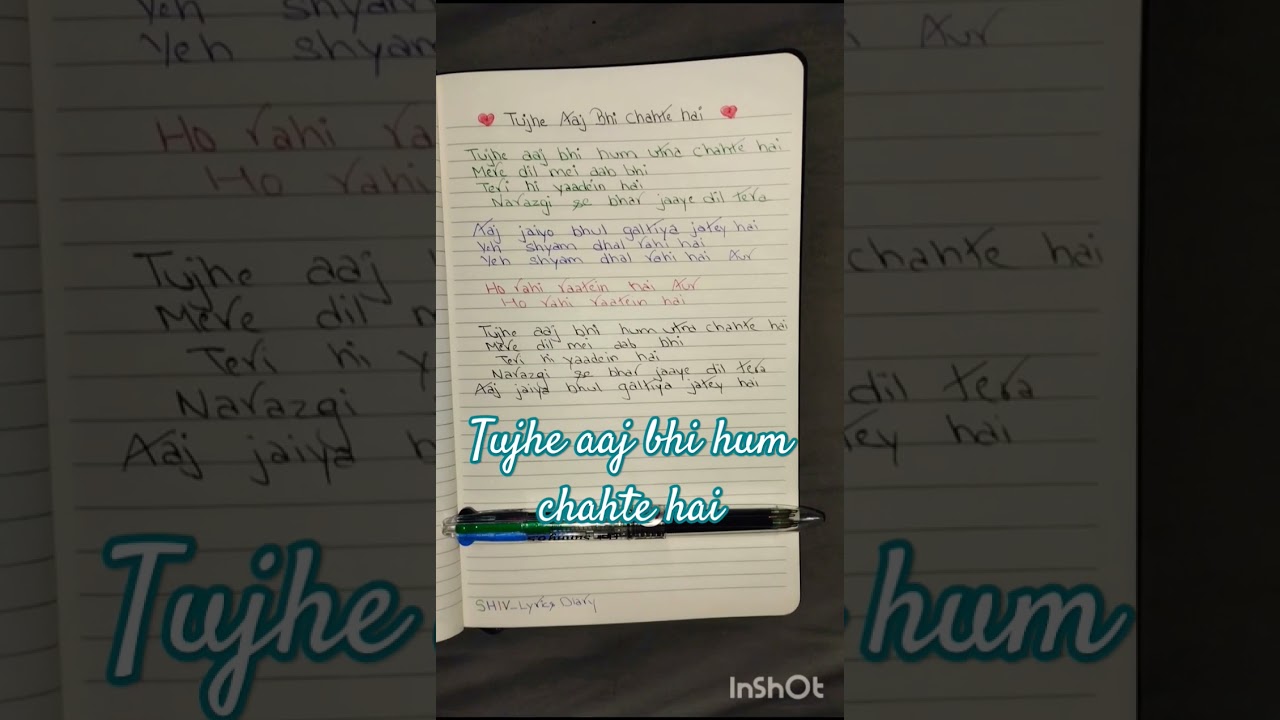 Tujhe Aaj Bhi Chahte hai
Tujhe aaj bhi hum utna chahte hai
Mere dil mei aab bhi
Teri hi yaadein hai
Narazgi se bhar jaaye dil tera
Aaj jaiyo bhul galtiya jatey hai
Yeh shyam dhal rahi hai
Yeh shyam dhal rahi hai Aur
Ho rahi raatein hai Aur
Ho rahi raatein hai
Tujhe aaj bhi hum utna chahte hai
Mere dil mei aab bhi
Teri hi yaadein hai
Narazgi se bhar jaaye dil tera
Aaj jaiya bhul galtiya jatey hai
Tujhe aaj bhi hum
chahte hai
SHIV_Lyrics Diary
InShOt